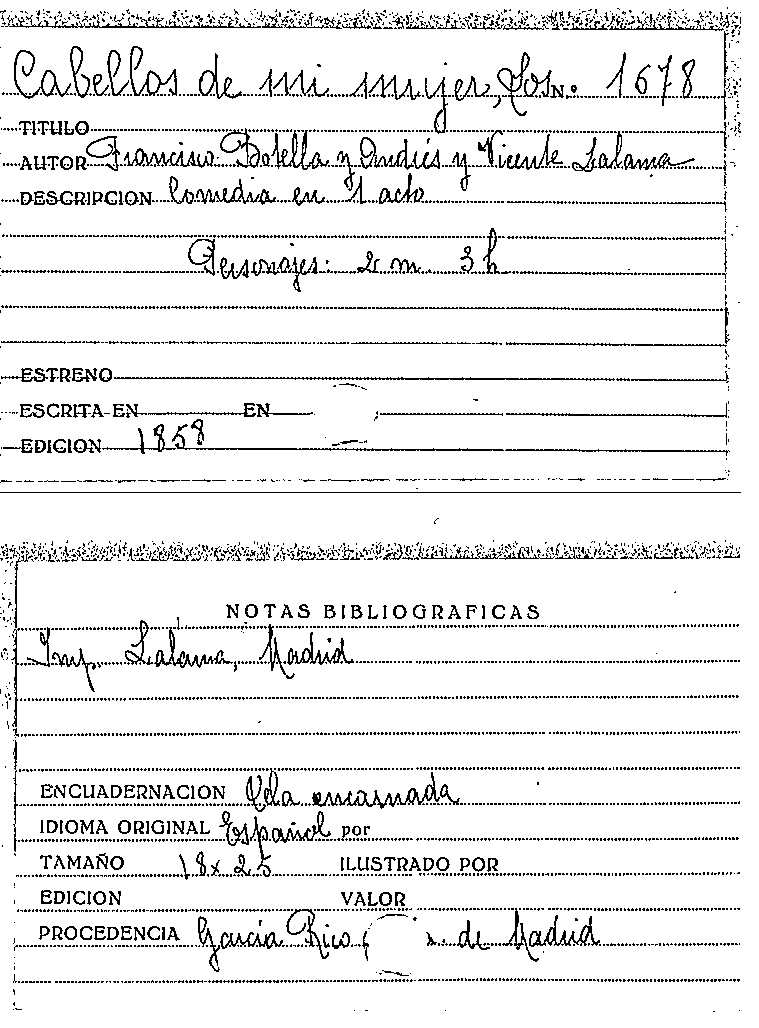 Cabellos de mi mujer, Los N. 1678
TITULO
AUTOR Francisco Botella y Andrés y Vicente Lalama
DESCRIPCION Comedia en 1 acto
Personajes: 2 m. 3 h
ESTRENO
ESCRITA EN EN
EDICION 1858
NOTAS BIBLIOGRAFICAS
Imp. Lalama, Madrid
ENCUADERNACION Tela encarnada
IDIOMA ORIGINAL Español por
TAMAÑO 18 x 25 ILUSTRADO POR
EDICION VALOR
PROCEDENCIA García Rico, de Madrid